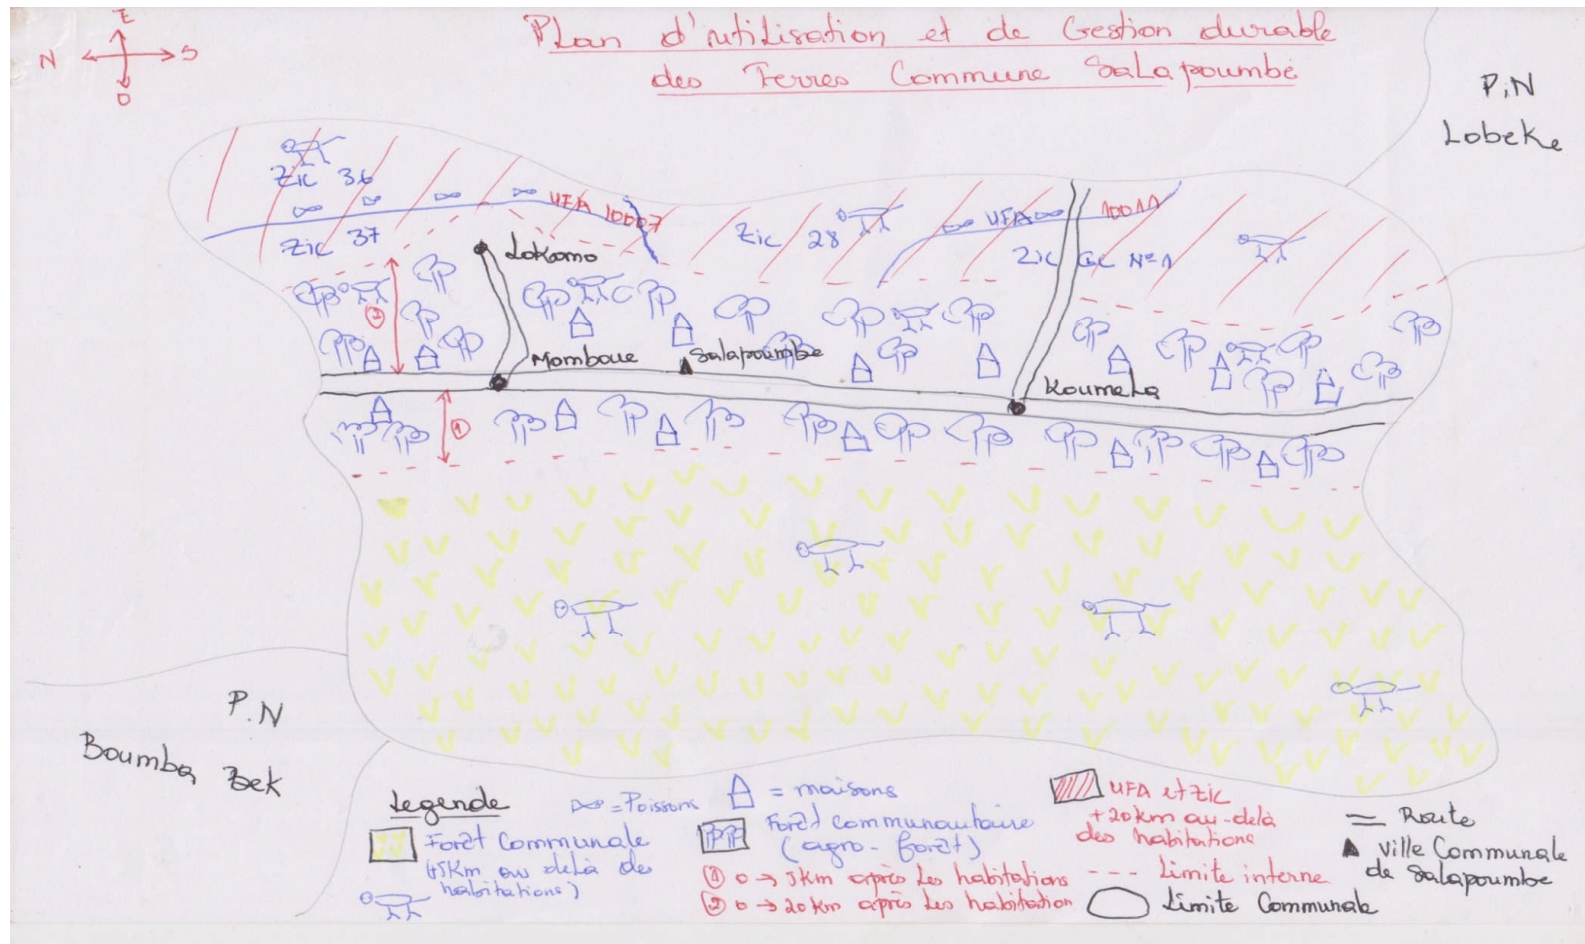 Plan d'utilisation et de Gestion durable
des Terres Commune Salapoumbé
E
N
S
O
P.N
Lobeke
Zic 36
UFA 10007
Zic 37
Zic 28
UFA 10011
Zic GC N°1
Lokomo
②
Momboue
Salapoumbe
Koumela
①
P.N
Boumba Bek
Legende
= Poissons
= maisons
UFA et Zic
+20km au-delà
des habitations
Forêt Communale
(+5Km au delà des
habitations)
Forêt communautaire
(agro-forêt)
① 0 → 5km après les habitations
② 0 → 20km après les habitation
= Route
ville Communale
de Salapoumbe
--- Limite interne
Limite Communale